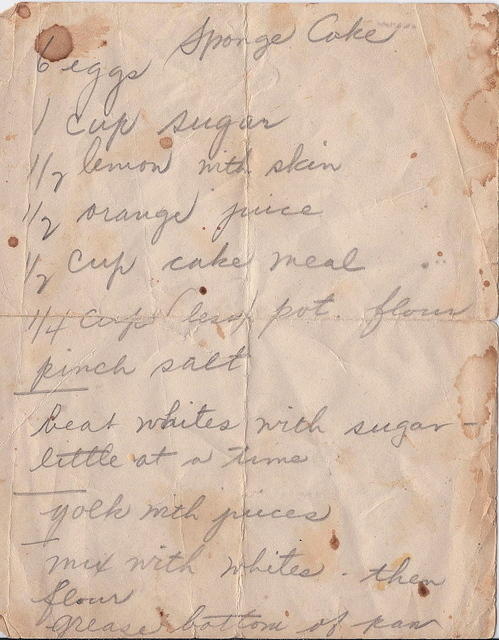 Sponge Cake
6 eggs
1 cup sugar
1/2 lemon with skin
1/2 orange juice
1/2 cup cake meal
1/4 cup (less) pot. flour
pinch salt
beat whites with sugar -
little at a time
yolk with juices
mix with whites - then
flour
grease bottom of pan